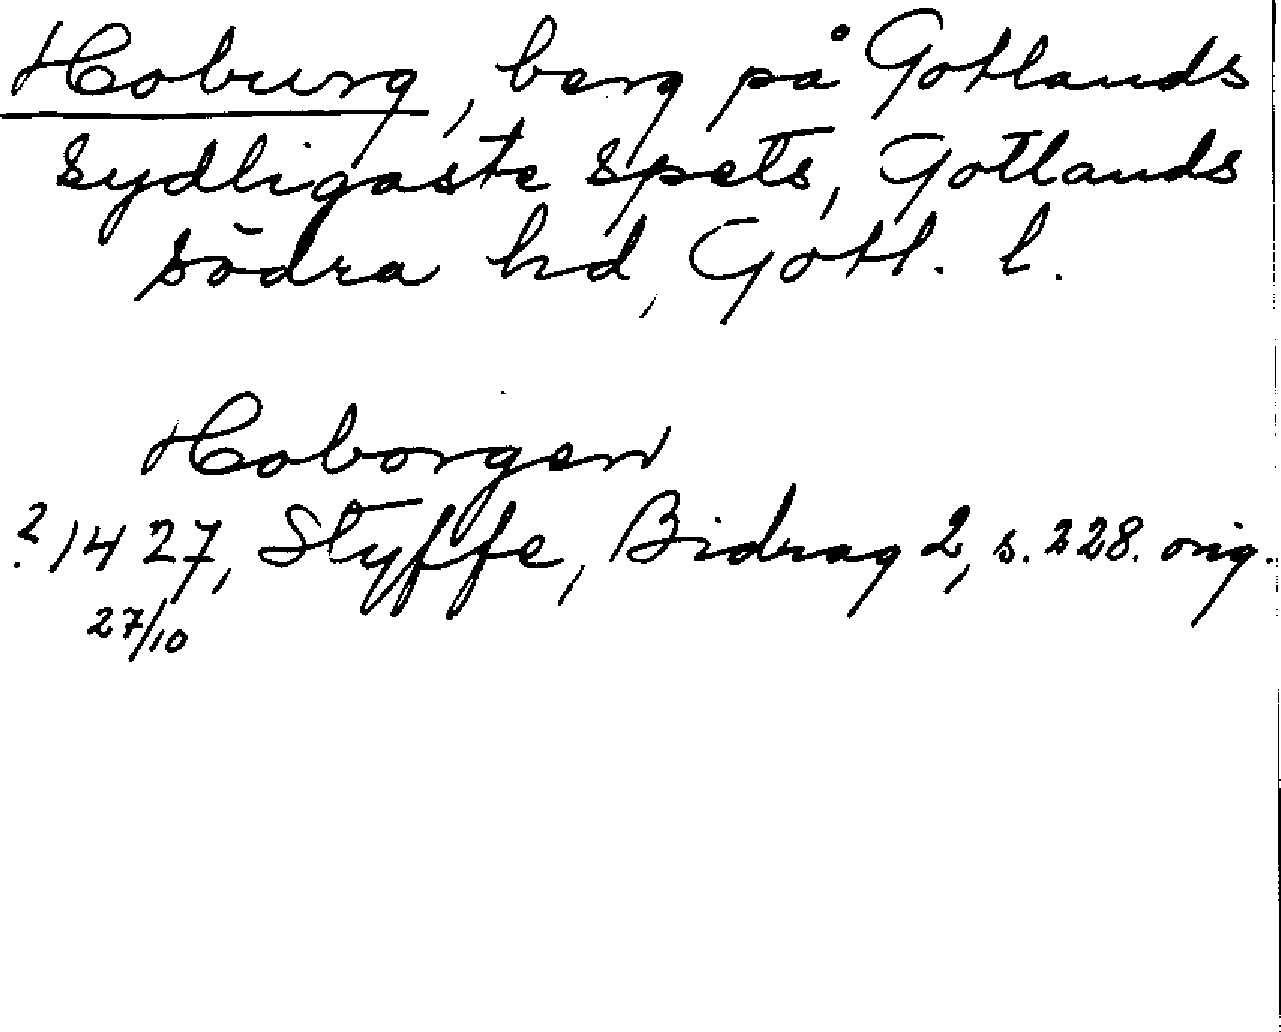 Hoburg, berg på Gotlands
sydligaste spets, Gotlands
södra hd, Gotl. l.
Hoborgen
? 1427, Styffe, Bidrag 2, s. 228. orig.
27/10